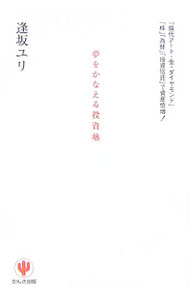 『現代アート・金・ダイヤモンド』
『株』『為替』『投資信託』で資産倍増！
夢をかなえる投資塾
逢坂ユリ
かんき出版